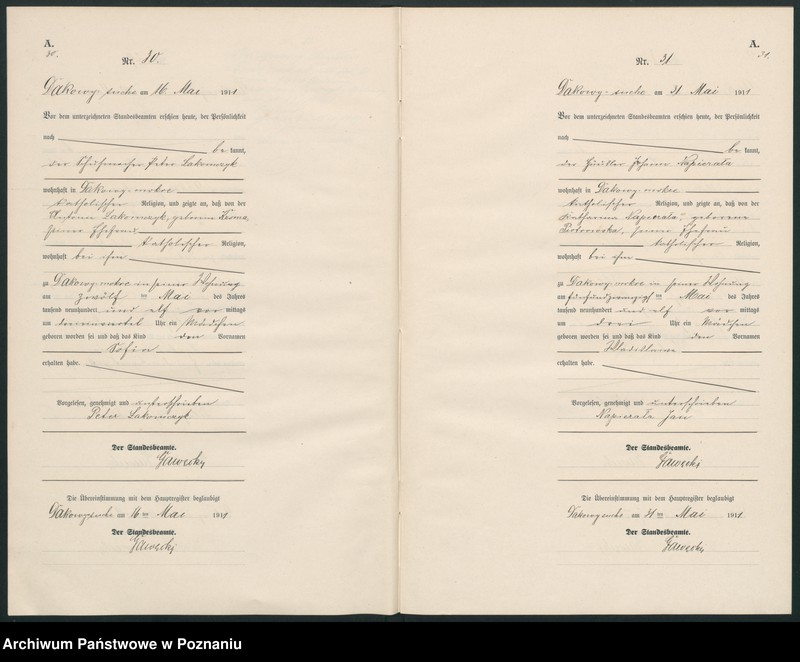 A.
30.
Nr. 30.
Dakowy suche am 16. Mai 1911
Vor dem unterzeichneten Standesbeamten erschien heute, der Persönlichkeit
nach
be kannt,
der Schuhmacher Peter
wohnhaft in Dakowy-mokre
katholischer Religion, und zeigte an, daß von der
geborene
seiner Ehefrau
katholischer Religion,
wohnhaft bei ihm
zu Dakowy-mokre in seiner Wohnung
am zwölf ten Mai des Jahres
tausend neunhundert und elf vor mittags
um Uhr ein Mädchen
geboren worden sei und daß das Kind den Vornamen
Sofia
erhalten habe.
Vorgelesen, genehmigt und unterschrieben
Peter
Der Standesbeamte.
Die Übereinstimmung mit dem Hauptregister beglaubigt
Dakowysuche am 16 ten Mai 1911
Der Standesbeamte.
A.
31.
Nr. 31
Dakowy-suche am 31 Mai 1911
Vor dem unterzeichneten Standesbeamten erschien heute, der Persönlichkeit
nach
be kannt,
der Häusler Johann Napierala
wohnhaft in Dakowy-mokre
katholischer Religion, und zeigte an, daß von der
Katharina Napierala, geborene
seiner Ehefrau
katholischer Religion,
wohnhaft bei ihm
zu Dakowy-mokre in seiner Wohnung
am fünfundzwanzigsten Mai des Jahres
tausend neunhundert und elf vor mittags
um drei Uhr ein Mädchen
geboren worden sei und daß das Kind den Vornamen
Wladislawa
erhalten habe.
Vorgelesen, genehmigt und unterschrieben
Napierała Jan
Der Standesbeamte.
Die Übereinstimmung mit dem Hauptregister beglaubigt
Dakowysuche am 31 ten Mai 1911
Der Standesbeamte.
Archiwum Państwowe w Poznaniu